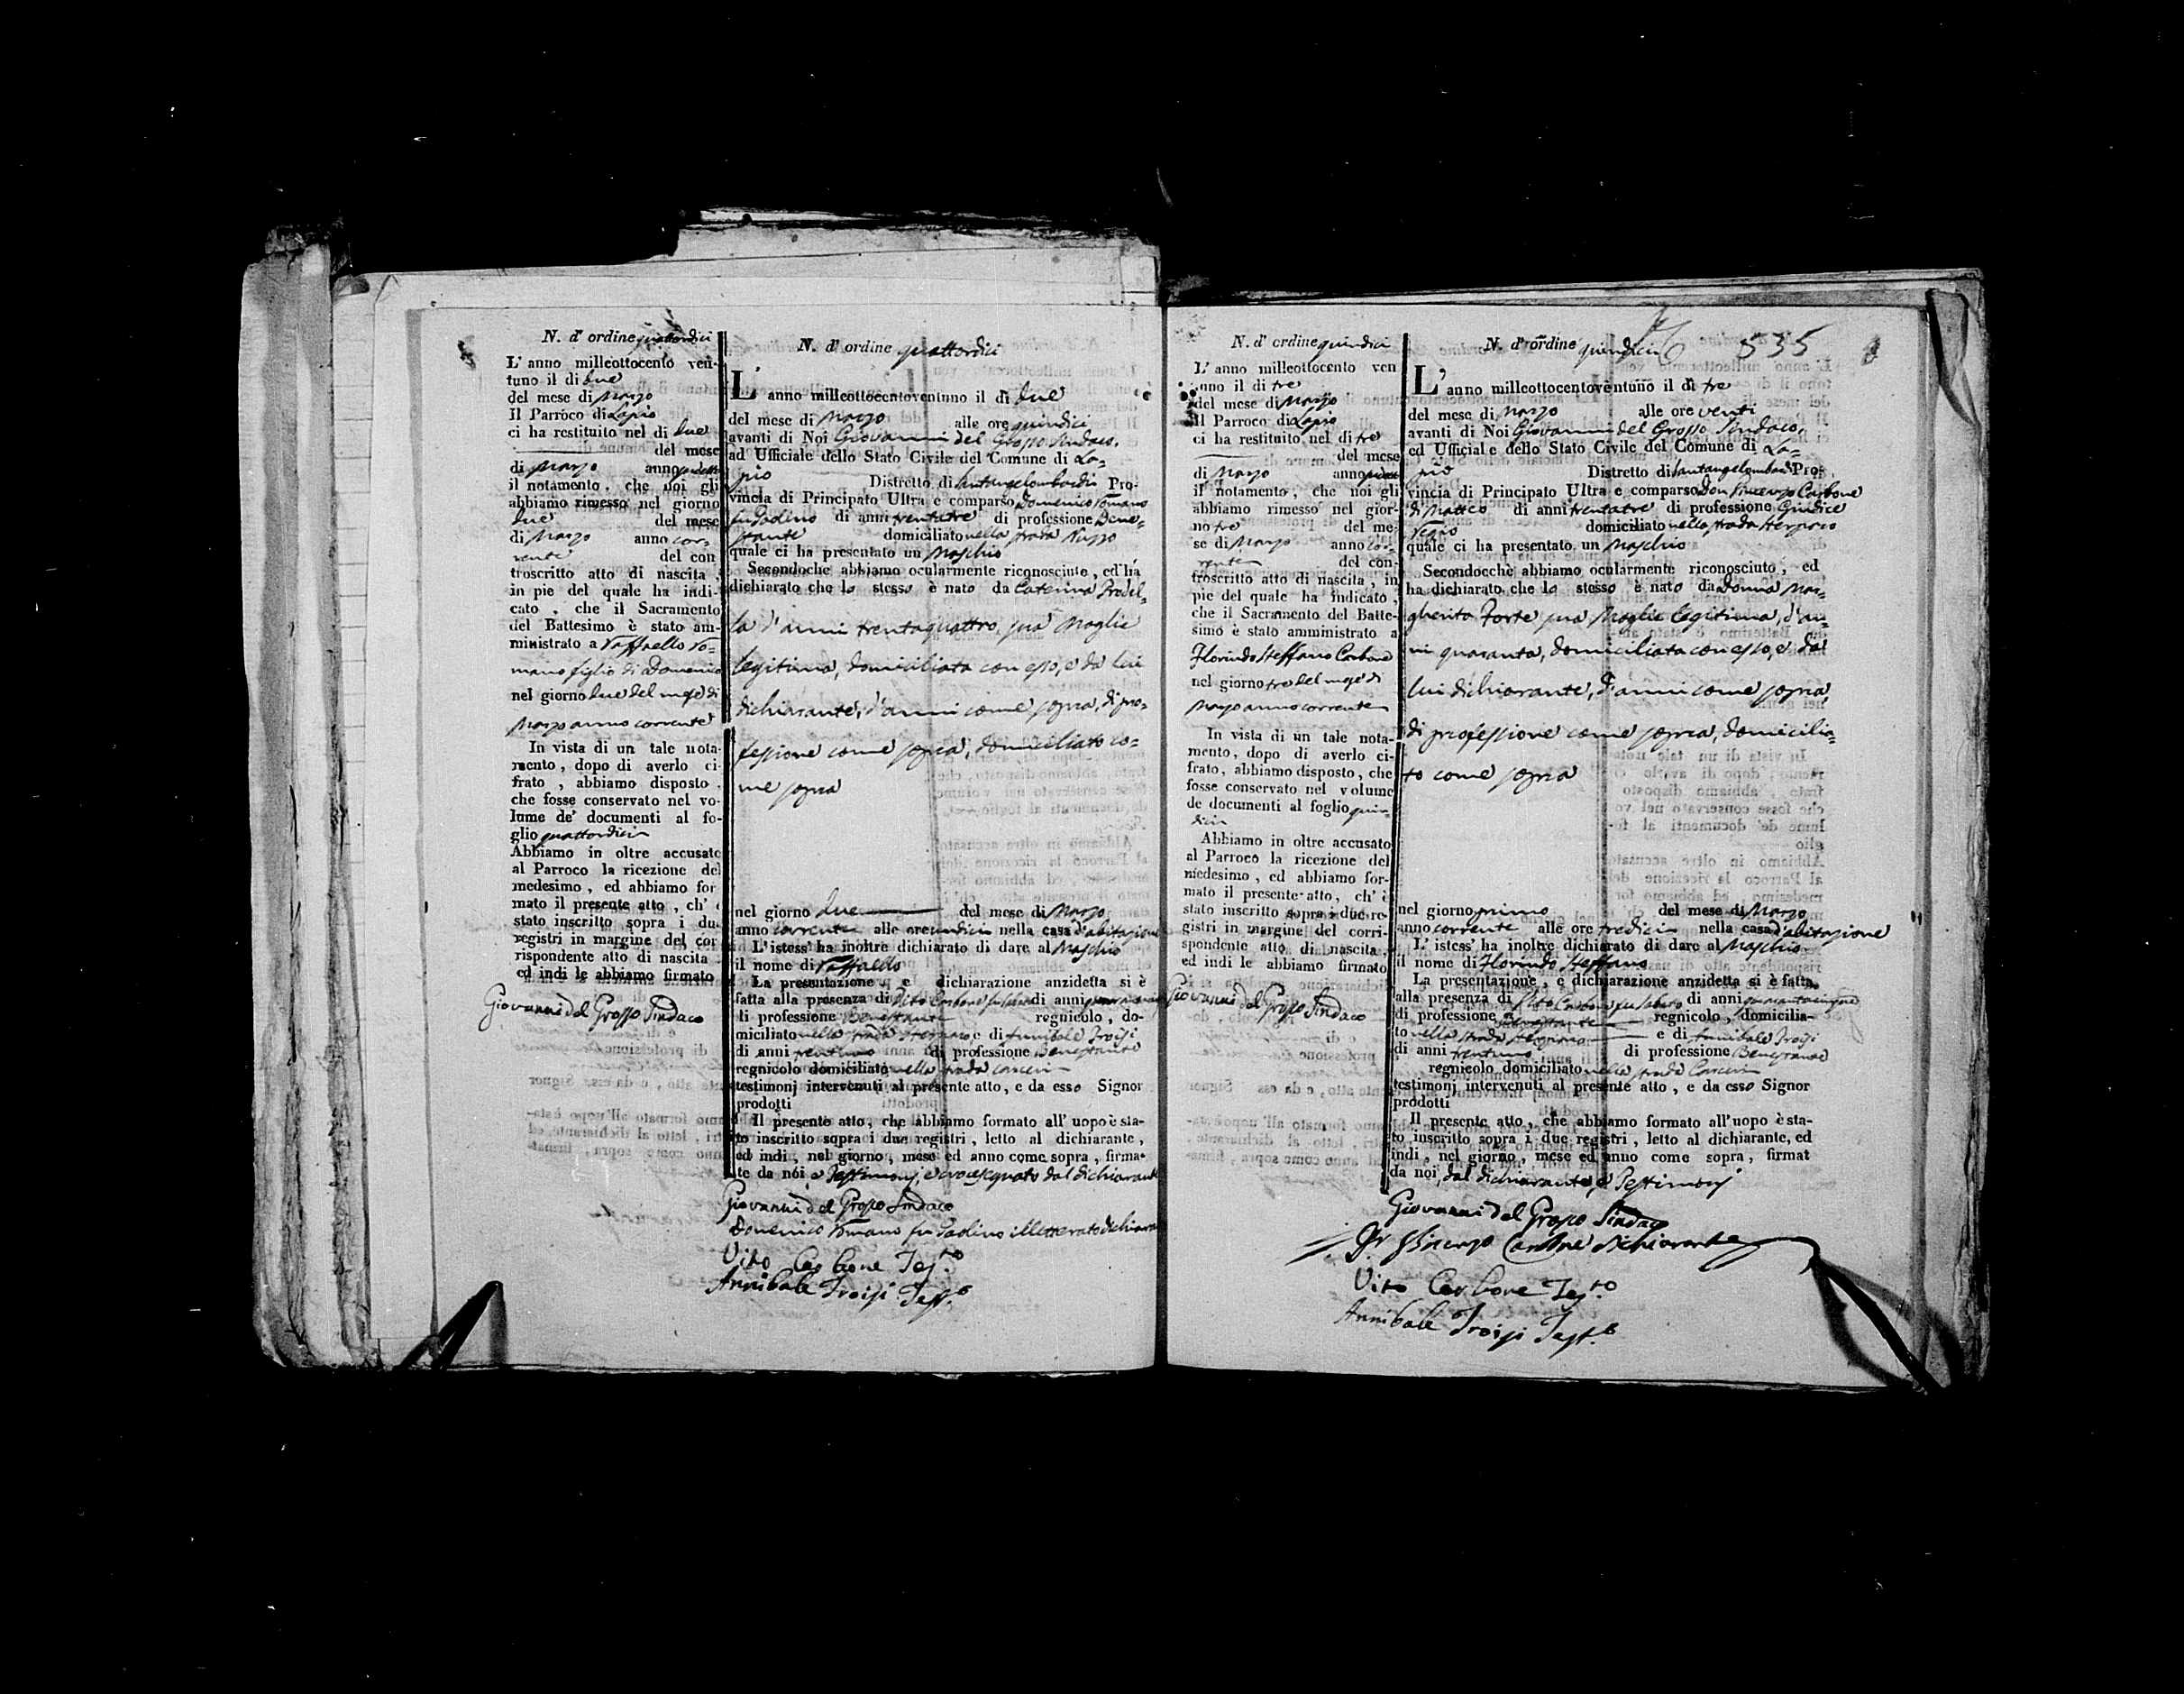 N. d' ordine quattordici
L' anno milleottocento ven-
tuno il di due
del mese di Marzo
Il Parroco di Lapio
ci ha restituito nel di due
del mese
di Marzo anno
il notamento, che noi gli
abbiamo rimesso nel giorno
due del mese
di Marzo anno cor-
rente del con
troscritto atto di nascita,
in pie del quale ha indi-
cato, che il Sacramento
del Battesimo è stato am-
ministrato a Raffaello Ro-
mano figlio di Domenico
nel giorno due del mese di
Marzo anno corrente
In vista di un tale nota-
mento, dopo di averlo ci-
frato, abbiamo disposto,
che fosse conservato nel vo-
lume de' documenti al fo-
glio quattordici
Abbiamo in oltre accusato
al Parroco la ricezione del
medesimo, ed abbiamo for
mato il presente atto, ch' è
stato inscritto sopra i due
registri in margine del cor
rispondente atto di nascita
ed indi le abbiamo firmato
Giovanni del Grosso Sindaco
N. d' ordine quattordici
L' anno milleottocentoventuno il di due
del mese di Marzo alle ore quindici
avanti di Noi Giovanni del Grosso Sindaco,
ad Ufficiale dello Stato Civile del Comune di La=
pio Distretto di Santangelombardi Pro-
vincia di Principato Ultra è comparso Domenico Romano
fu Paolino di anni trentatre di professione Bene=
stante domiciliato nella strada Ruzzo
quale ci ha presentato un Maschio
Secondochè abbiamo ocularmente riconosciuto, ed ha
dichiarato che lo stesso è nato da Caterina Prodel=
la d'anni trentaquattro sua Moglie
legitima, domiciliata con esso, e da lui
dichiarante, d'anni come sopra, di pro=
fessione come sopra, domiciliato co=
me sopra
nel giorno due del mese di Marzo
anno corrente alle ore undici nella casa d'abitazione
L'istess' ha inoltre dichiarato di dare al Maschio
il nome di Raffaello
La presentazione, e dichiarazione anzidetta si è
fatta alla presenza di Vito Carbone fu di anni
di professione Benestante regnicolo, do-
miciliato nella strada e di Annibale Troisi
di anni trentuno di professione Benestante
regnicolo domiciliato nella strada Carceri
testimonj intervenuti al presente atto, e da esso Signor
prodotti
Il presente atto, che abbiamo formato all' uopo è sta-
to inscritto sopra i due registri, letto al dichiarante,
ed indi, nel giorno, mese ed anno come sopra, firma-
te da noi e Testimonj, e crocesegnato dal dichiarante
Giovanni del Grosso Sindaco
Domenico Romano fu Paolino illetterato dichiarante
Vito Carbone Testo
Annibale Troisi Testo
N. d' ordine quindici
L' anno milleottocento ven
tuno il di tre
del mese di Marzo
Il Parroco di Lapio
ci ha restituito nel di tre
del mese
di Marzo anno
il notamento, che noi gli
abbiamo rimesso nel gior-
no tre del me-
se di Marzo anno cor-
rente del con-
troscritto atto di nascita, in
pie del quale ha indicato,
che il Sacramento del Batte-
simo è stato amministrato a
Florindo Steffano Carbone
nel giorno tre del mese di
Marzo anno corrente
In vista di un tale nota-
mento, dopo di averlo ci-
frato, abbiamo disposto, che
fosse conservato nel volume
de documenti al foglio quin-
dici
Abbiamo in oltre accusato
al Parroco la ricezione del
medesimo, ed abbiamo for-
mato il presente atto, ch' è
stato inscritto sopra i due re-
gistri in margine del corri-
spondente atto di nascita,
ed indi le abbiamo firmato
Giovanni del Grosso Sindaco
N. d' ordine quindici 535
L' anno milleottocentoventuno il di tre
del mese di Marzo alle ore venti
avanti di Noi Giovanni del Grosso Sindaco,
ed Ufficiale dello Stato Civile del Comune di La=
pio Distretto di Santangelombardi Pro-
vincia di Principato Ultra è comparso Don Vincenzo Carbone
di Matteo di anni trentatre di professione Giudice
Regio domiciliato nella strada
quale ci ha presentato un Maschio
Secondocchè abbiamo ocularmente riconosciuto, ed
ha dichiarato che lo stesso è nato da Donna Mar=
gherita Forte sua Moglie legitima, d'an=
ni quaranta, domiciliata con esso, e da
lui dichiarante, d'anni come sopra
di professione come sopra, domicilia=
to come sopra
nel giorno primo del mese di Marzo
anno corrente alle ore tredici nella casa d'abitazione
L' istess' ha inoltre dichiarato di dare al Maschio
il nome di Florindo Steffano
La presentazione, e dichiarazione anzidetta si è fatta
alla presenza di Vito Carbone fu di anni quarantacinque
di professione Benestante regnicolo, domicilia-
to nella strada e di Annibale Troisi
di anni trentuno di professione Benestante
regnicolo domiciliato nella strada Carceri
testimonj intervenuti al presente atto, e da esso Signor
prodotti
Il presente atto, che abbiamo formato all'uopo è sta-
to inscritto sopra i due registri, letto al dichiarante, ed
indi, nel giorno, mese ed anno come sopra, firmat
da noi, dal dichiarante, e Testimonj
Giovanni del Grosso Sindaco
Vincenzo Carbone dichiarante
Vito Carbone Testo
Annibale Troisi Testo